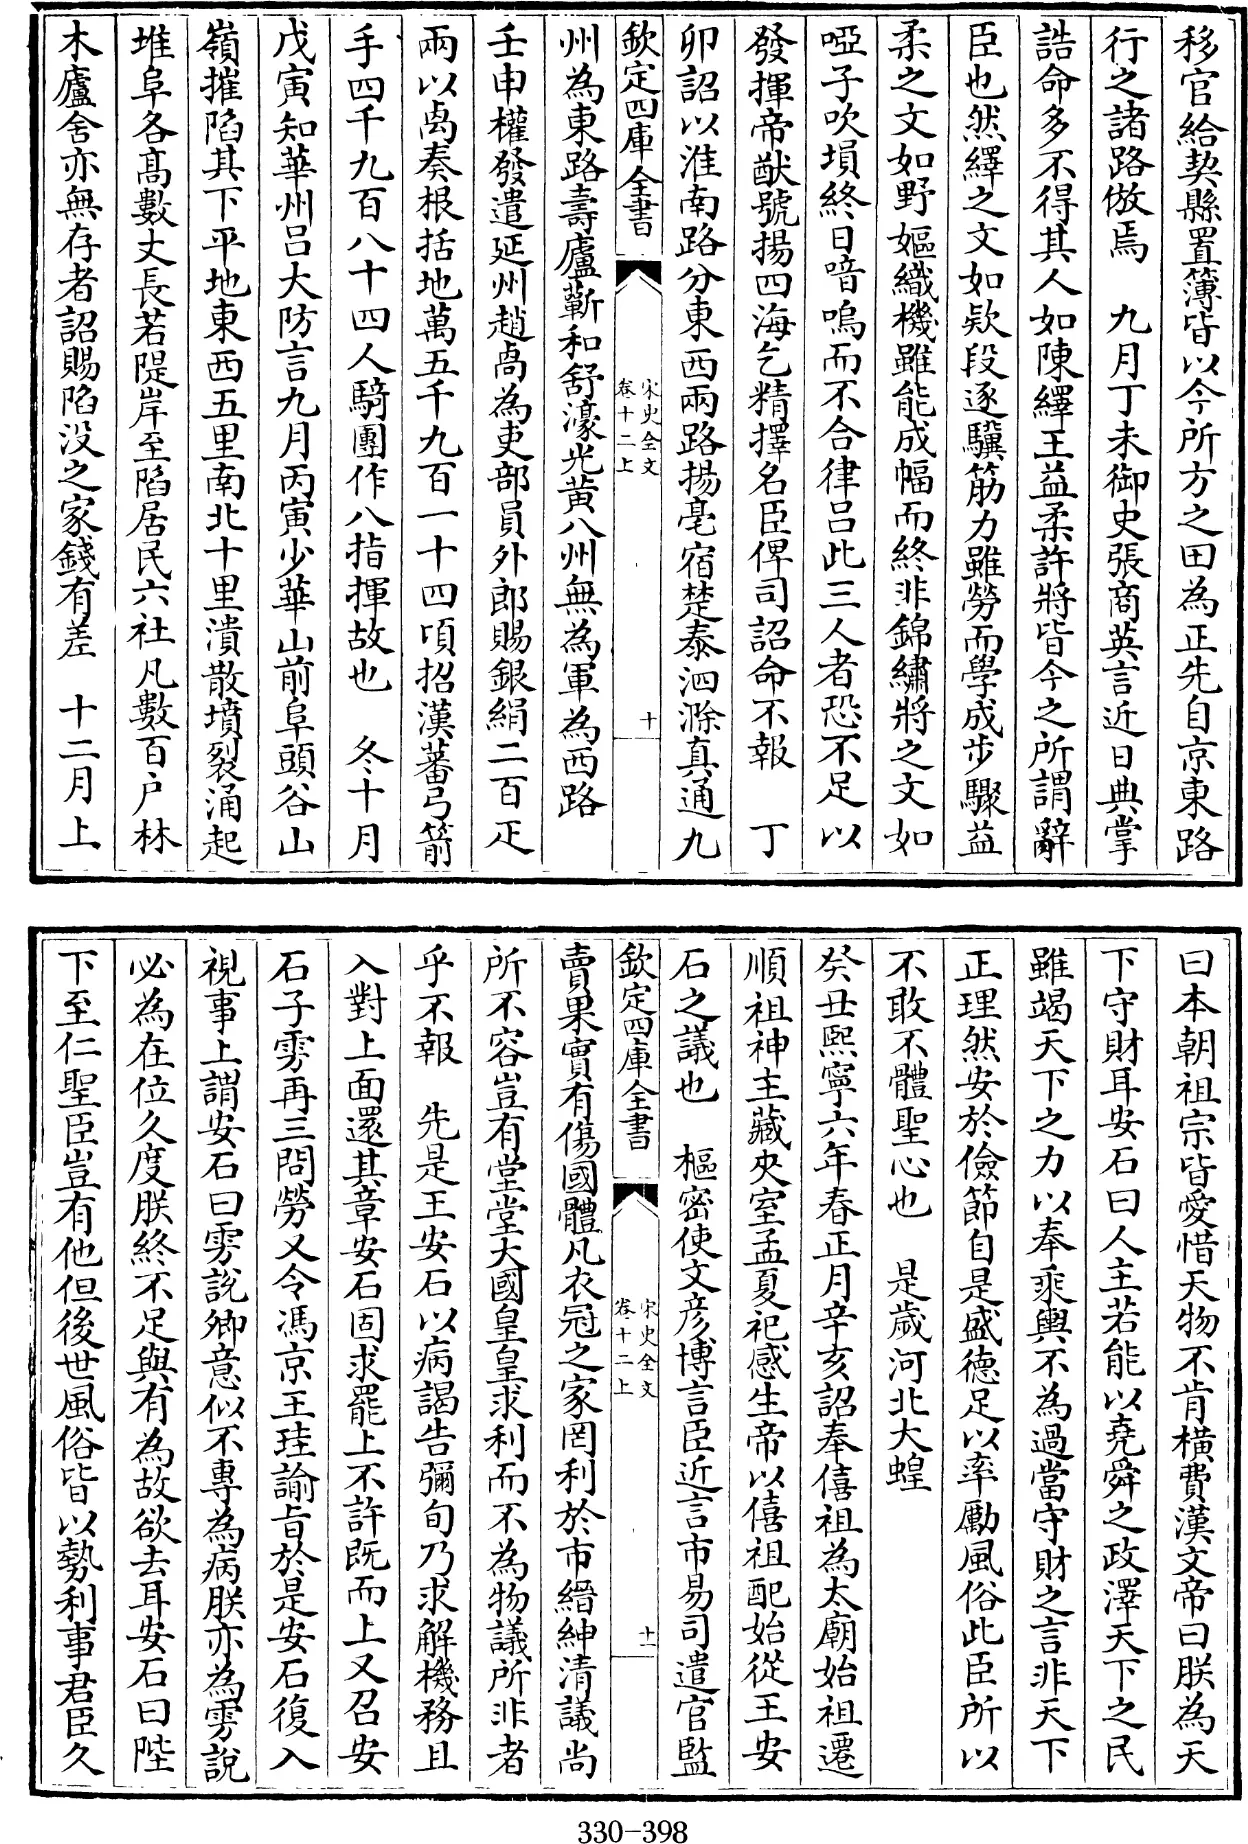 移官給契縣置簿皆以今所方之田為正先自京東路
行之諸路倣焉　九月丁未御史張商英言近日典掌
誥命多不得其人如陳繹王益柔許將皆今之所謂辭
臣也然繹之文如欵段逐驥筋力雖勞而學成步驟益
柔之文如野嫗織機雖能成幅而終非錦繡將之文如
啞子吹塤終日喑嗚而不合律呂此三人者恐不足以
發揮帝猷號揚四海乞精擇名臣俾司詔命不報　丁
卯詔以淮南路分東西兩路揚亳宿楚泰泗滁真通九
欽定四庫全書
宋史全文
卷十二上
十
州為東路壽廬蘄和舒濠光黃八州無為軍為西路
壬申權發遣延州趙卨為吏部員外郎賜銀絹二百疋
兩以卨奏根括地萬五千九百一十四頃招漢蕃弓箭
手四千九百八十四人騎團作八指揮故也　冬十月
戊寅知華州呂大防言九月丙寅少華山前阜頭谷山
嶺摧陷其下平地東西五里南北十里潰散墳裂涌起
堆阜各高數丈長若隄岸至陷居民六社凡數百户林
木廬舍亦無存者詔賜陷没之家錢有差　十二月上
曰本朝祖宗皆愛惜天物不肯橫費漢文帝曰朕為天
下守財耳安石曰人主若能以堯舜之政澤天下之民
雖竭天下之力以奉乘輿不為過當守財之言非天下
正理然安於儉節自是盛德足以率勵風俗此臣所以
不敢不體聖心也　是歲河北大蝗
癸丑熙寧六年春正月辛亥詔奉僖祖為太廟始祖遷
順祖神主藏夾室孟夏祀感生帝以僖祖配始從王安
石之議也　樞密使文彦博言臣近言市易司遣官監
欽定四庫全書
宋史全文
卷十二上
十一
賣果實有傷國體凡衣冠之家罔利於市縉紳清議尚
所不容豈有堂堂大國皇皇求利而不為物議所非者
乎不報　先是王安石以病謁告彌旬乃求解機務且
入對上面還其章安石固求罷上不許既而上又召安
石子雱再三問勞又令馮京王珪諭旨於是安石復入
視事上謂安石曰雱說卿意似不專為病朕亦為雱說
必為在位久度朕終不足與有為故欲去耳安石曰陛
下至仁聖臣豈有他但後世風俗皆以勢利事君臣久
330-398